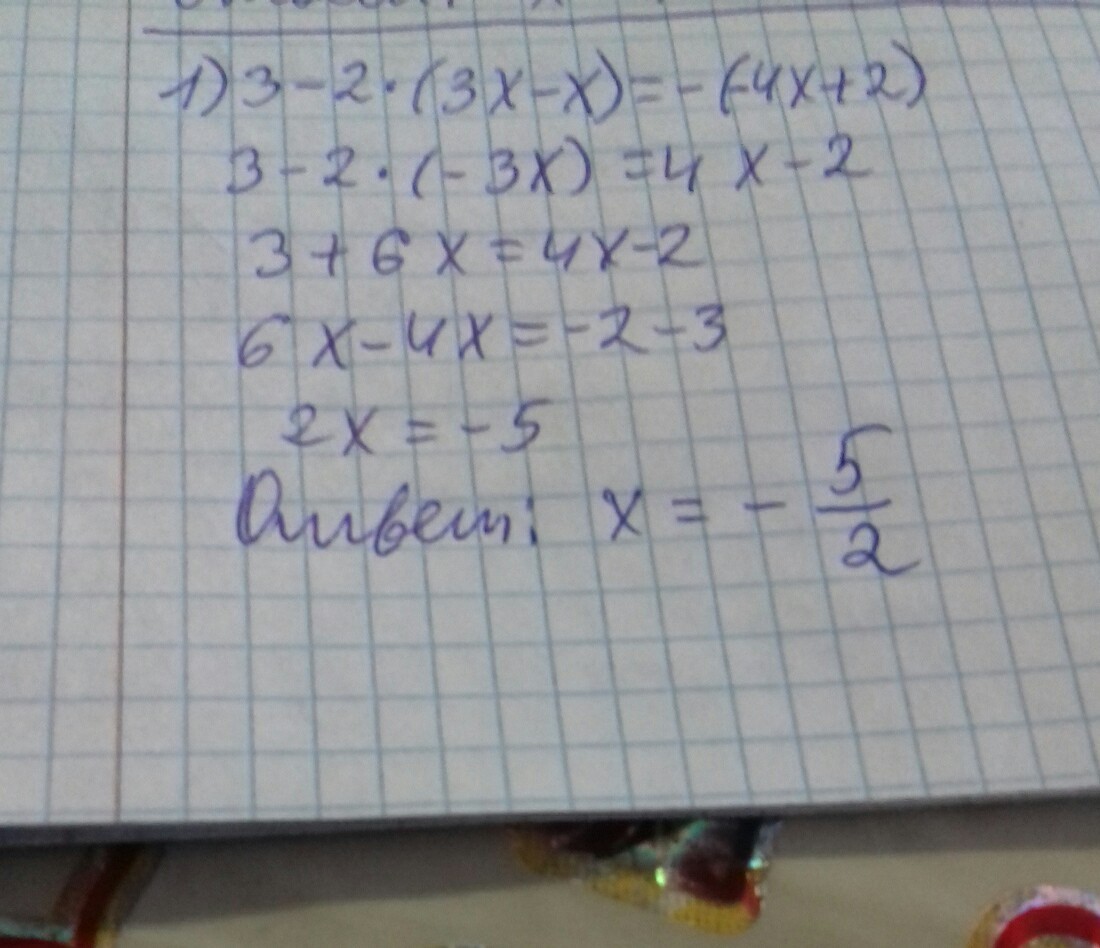 1) 3 - 2 · (3x - x) = - (-4x + 2)
3 - 2 · (- 3x) = 4 x - 2
3 + 6 x = 4x - 2
6 x - 4x = -2 - 3
2x = - 5
Ответ: x = - 5/2